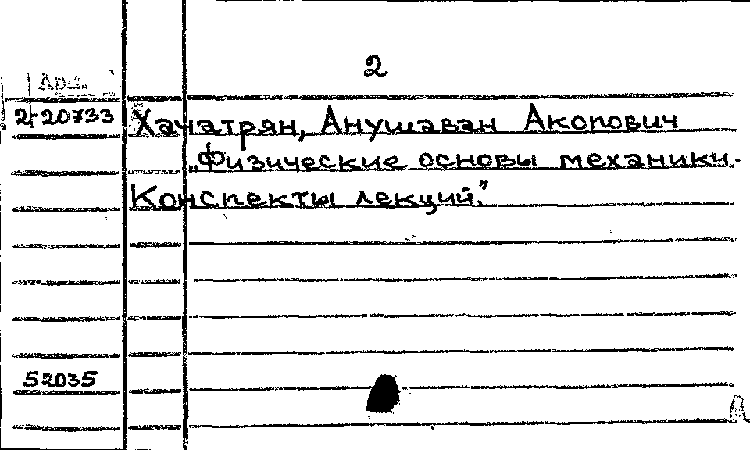 2
2-20733
Хачатрян, Анушаван Акопович
„Физические основы механики.
Конспекты лекций."
52035